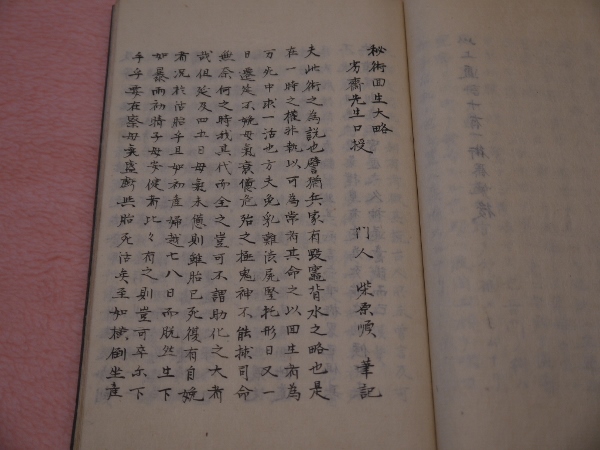 秘術回生大略
方齋先生口授
門人 柴原順 筆記
夫此術之為說也譬猶兵家有毀竈背水之略也是
在一時之權非執以可為常有其命之以回生者為
万死中求一活也方夫免乳難澁屍壅托形日又一
日遷延不娩母氣衰憊危殆之極鬼神不能救司命
無奈何之時我其代而全之豈可不謂助化之大者
哉但延及四五日母氣未憊則雖胎已死復有自娩
者況於活胎乎且如初產婦越七八日而脫然生下
如暴雨初晴子母安健者比々有之則豈可卒尓下
手乎要在察母氣盛衰與胎死活矣至如橫倒坐產